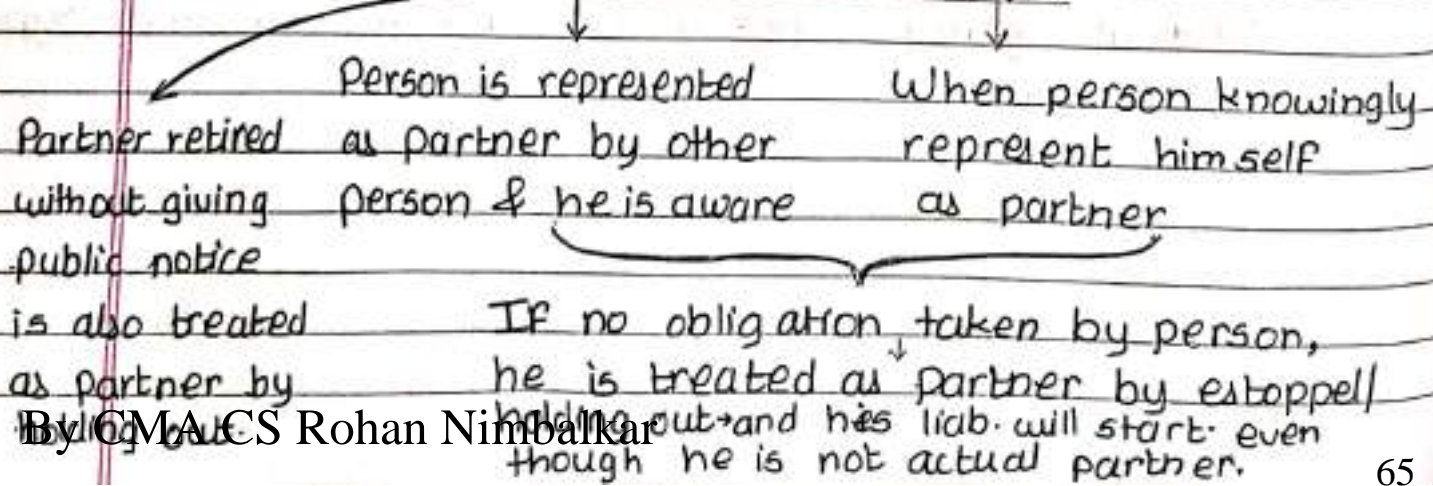 Partner retired
without giving
public notice
is also treated
as partner by
holding out.
Person is represented
as partner by other
person & he is aware
When person knowingly
represent himself
as partner
If no obligation taken by person,
he is treated as partner by estoppel/
holding out→and his liab. will start. even
though he is not actual partner.
By CMA CS Rohan Nimbalkar
65